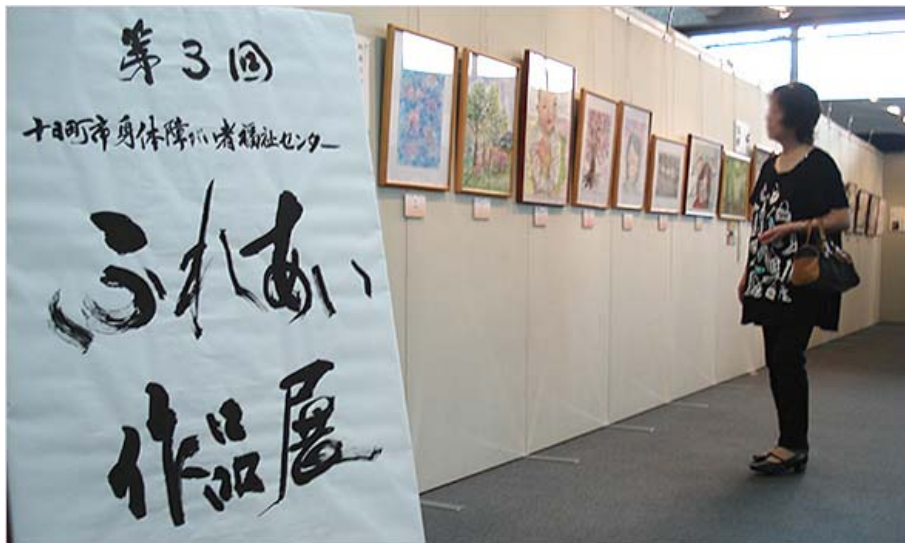 第3回
十日町市身体障がい者福祉センター
ふれあい
作品展